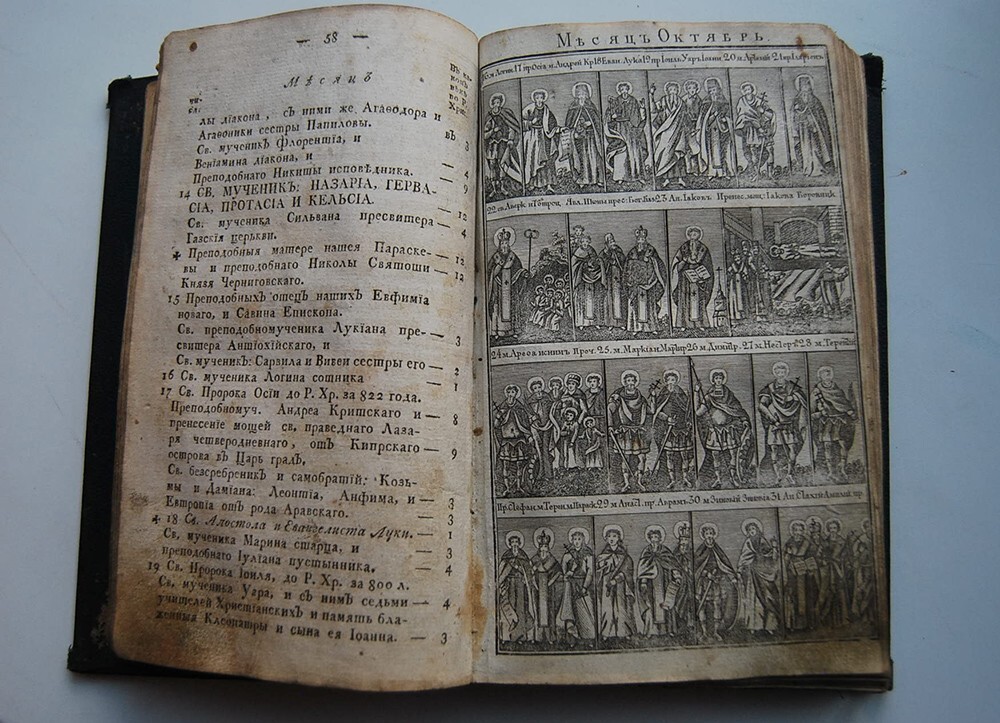 — 58 —
Мѣсяцъ
Въ ка-
комъ
вѣкѣ
по Р.
Хрис.
чи-
сла.
лы дїакона, съ ними же Агаѳодора и
Агаѳоники сестры Папиловы. въ 3
Св. мученикъ Флорентїа, и
Венїамина дїакона, и
Преподобнаго Никиты исповѣдника. — 4
14 СВ. МУЧЕНИКЪ: НАЗАРІА, ГЕРВА- — 9
СІА, ПРОТАСІА И КЕЛЬСІА. — 12
Св. мученика Сильвана пресвитера — 4
Газскїя церькви.
Преподобныя матере нашея Параске- — 12
вы и преподобнаго Николы Святоши — 12
Князя Черниговскаго.
15 Преподобныхъ отецъ нашихъ Евфимїа
новаго, и Савина Епископа.
Св. преподобномученика Лукїана пре- — 3
свитера Антїохїйскаго, и
Св. мученикъ: Сарвила и Вивеи сестры его — 2
16 Св. мученика Логина сотника — 1
17 Св. Пророка Осїи до Р. Хр. за 822 года.
Преподобномуч. Андреа Критскаго и — 8
пренесенїе мощей св. праведнаго Лаза-
ря четверодневнаго, отъ Кипрскаго — 9
острова въ Царь градъ,
Св. безсребреник и самобратїй: Козь-
мы и Дамїана: Леонтїа, Анфима, и — 3
Евтропїа отъ рода Аравскаго. — 3
18 Св. Апостола и Евангелиста Луки. — 1
Св. мученика Марина старца, и — 3
преподобнаго Іулїана пустынника, — 4
19 Св. Пророка Іоиля, до Р. Хр. за 800 л.
Св. мученика Уара, и съ нимъ седьми — 4
учителей Христїанскихъ и память бла-
женныя Клеопатры и сына ея Іоанна. — 3
МѢСЯЦЪ ОКТЯБРЬ.
16 м. Логин. 17 пр. Осїа и Андрей Кр 18 Еван. Лука 19 пр Іоиль Уаръ Іоанн 20 м. Артемїй 21 пр Іларїон
22 св. Аверк и Явл. Иконы прес: Бог: Каз 23 Ап. Іаковъ Пренес. мощ: Іакова Боровицк
24 м. Ареѳа иснимъ 25. м. Маркїан Мартир 26 м. Димитр. 27 м. Несторъ 28 м. Терентїй
Пр. Стефан м Терит м Параск 29 м Анаст. пр. Аврам 30 м Зиновїй Зиновїа 31 Ап. Стахїй Амплїй